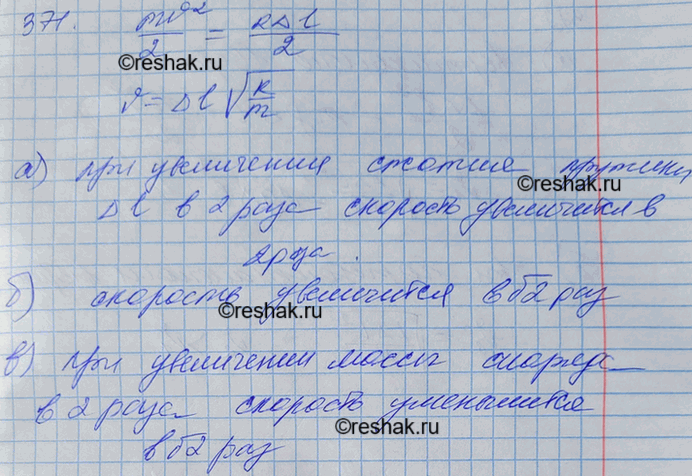 371. mv²/2 = kΔl/2
©reshak.ru
v = Δl √k/m
а) при увеличении сжатия пружины
©reshak.ru
Δl в 2 раза скорость увеличится в
2 раза.
б) скорость увеличится в √2 раз
©reshak.ru
в) при увеличении массы снаряда
в 2 раза скорость уменьшится
©reshak.ru
в √2 раз